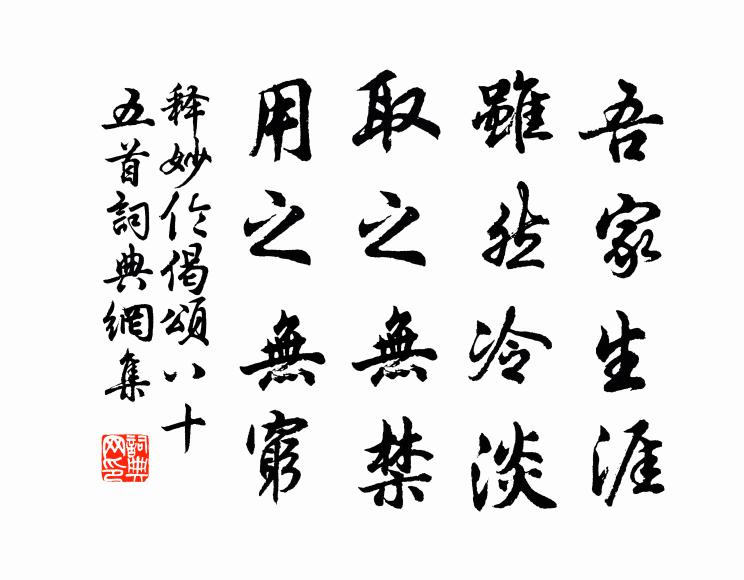 吾家生涯
雖然冷淡
取之無禁
用之無窮
释妙伦偈頌八十
五首詞典網集
詞典網印